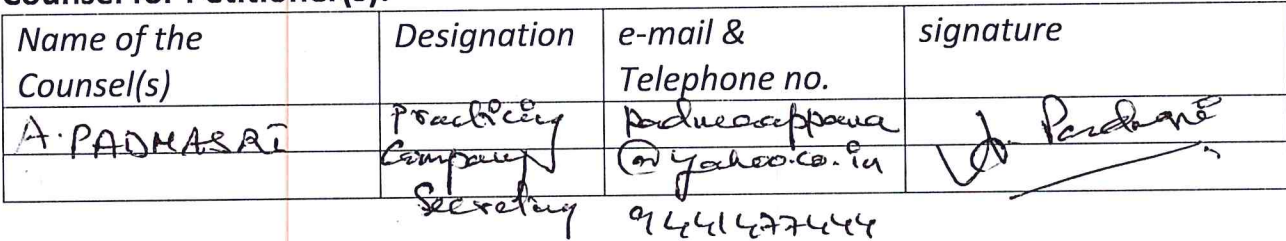 Counsel for Petitioner(s):
Name of the Counsel(s) Designation e-mail & Telephone no. signature
A. PADMASRI Practicing Company Secretary padmaappana @yahoo.co.in 9441477444 A. Padmasri